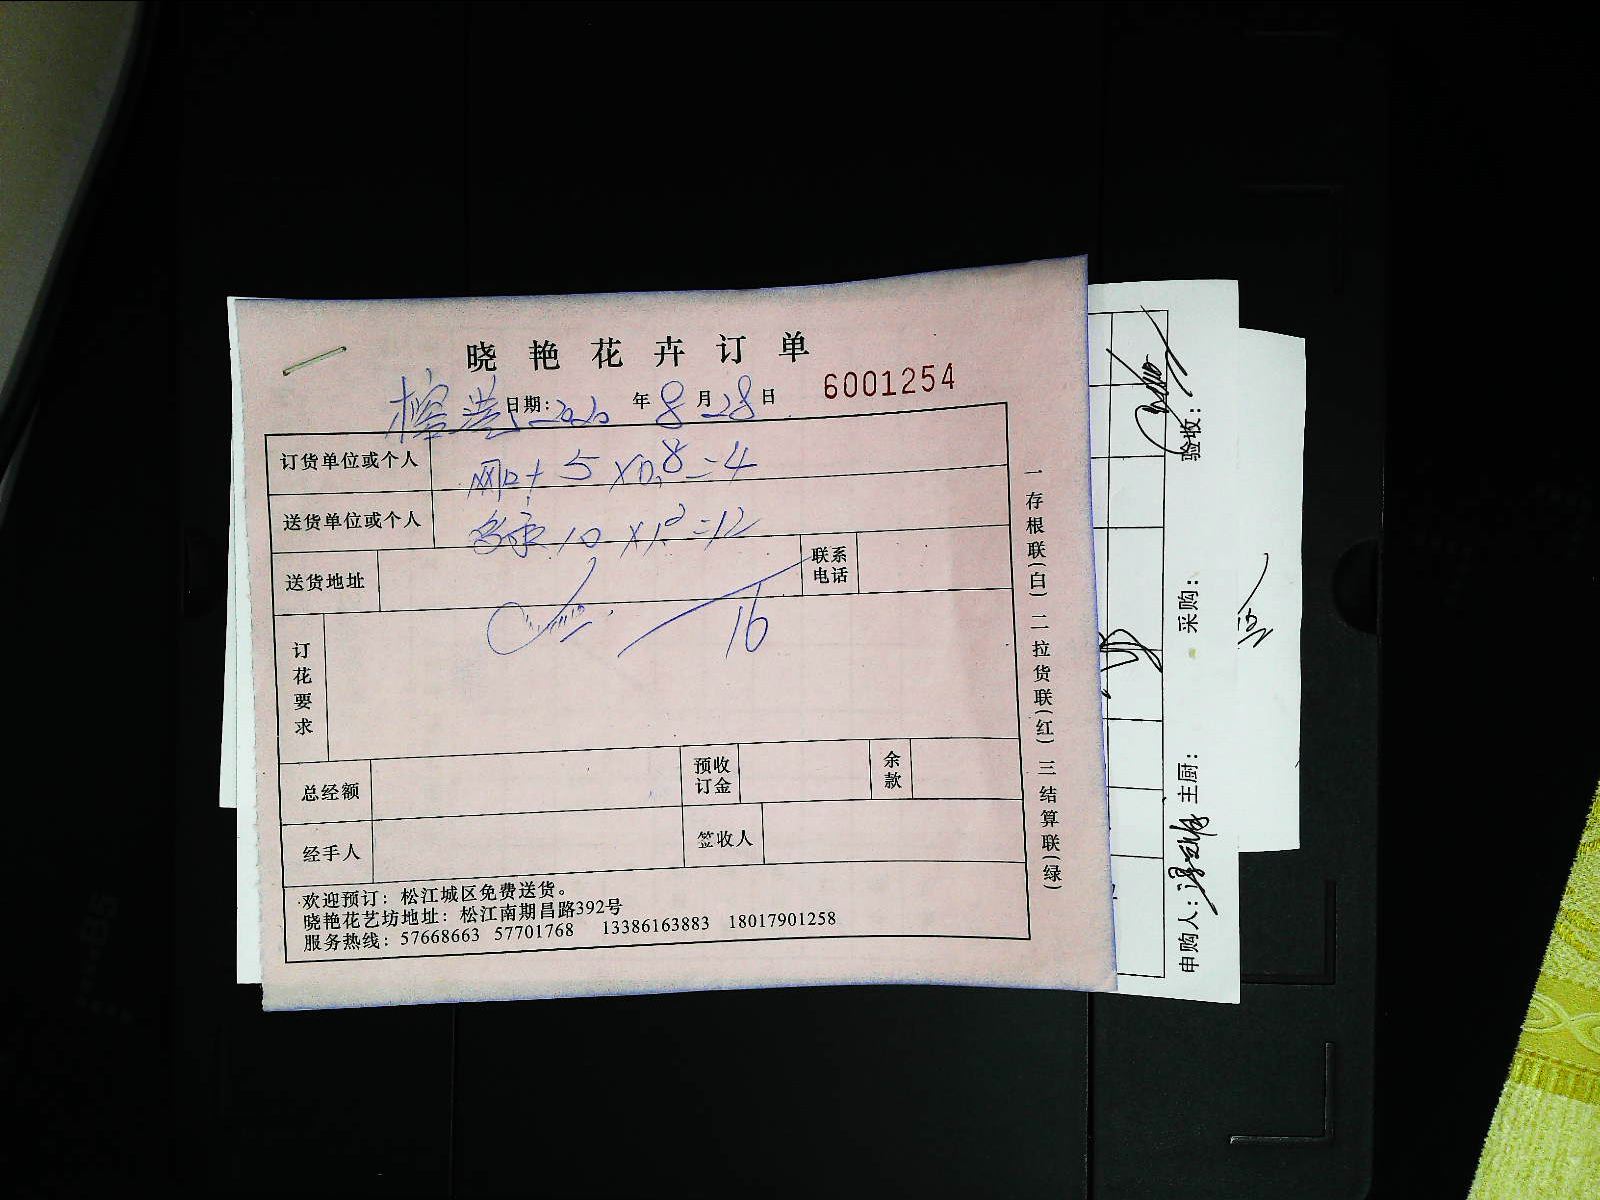 晓艳花卉订单
6001254
日期: 2020 年 8 月 28 日
订货单位或个人
5 X 0.8 = 4
送货单位或个人
10 X 1.2 = 12
送货地址
联系电话
16
订花要求
总经额
预收订金
余款
经手人
签收人
欢迎预订：松江城区免费送货。
晓艳花艺坊地址：松江南期昌路392号
服务热线：57668663 57701768 13386163883 18017901258
一存根联(白) 二拉货联(红) 三结算联(绿)
申购人: 主厨: 采购: 验收: